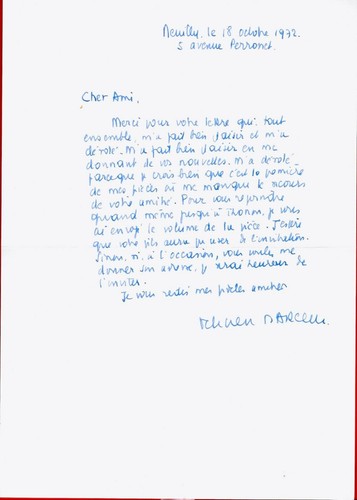 Neuilly, le 18 octobre 1972.
5 avenue Perronet.
Cher Ami,
Merci pour votre lettre qui, tout
ensemble, m'a fait bien plaisir et m'a
désolé. M'a fait bien plaisir en me
donnant de vos nouvelles. M'a désolé
parce que je crois bien que c'est la première
de mes pièces où me manque le secours
de votre amitié. Pour vous
quand même jusqu'à Thonon, je vous
ai envoyé le volume de la pièce. J'espère
que votre fils aura pu user de l'invitation.
Sinon, si, à l'occasion, vous voulez me
donner son adresse, je serai heureux de
l'inviter.
Je vous redis mes fidèles amitiés
MARCEAU